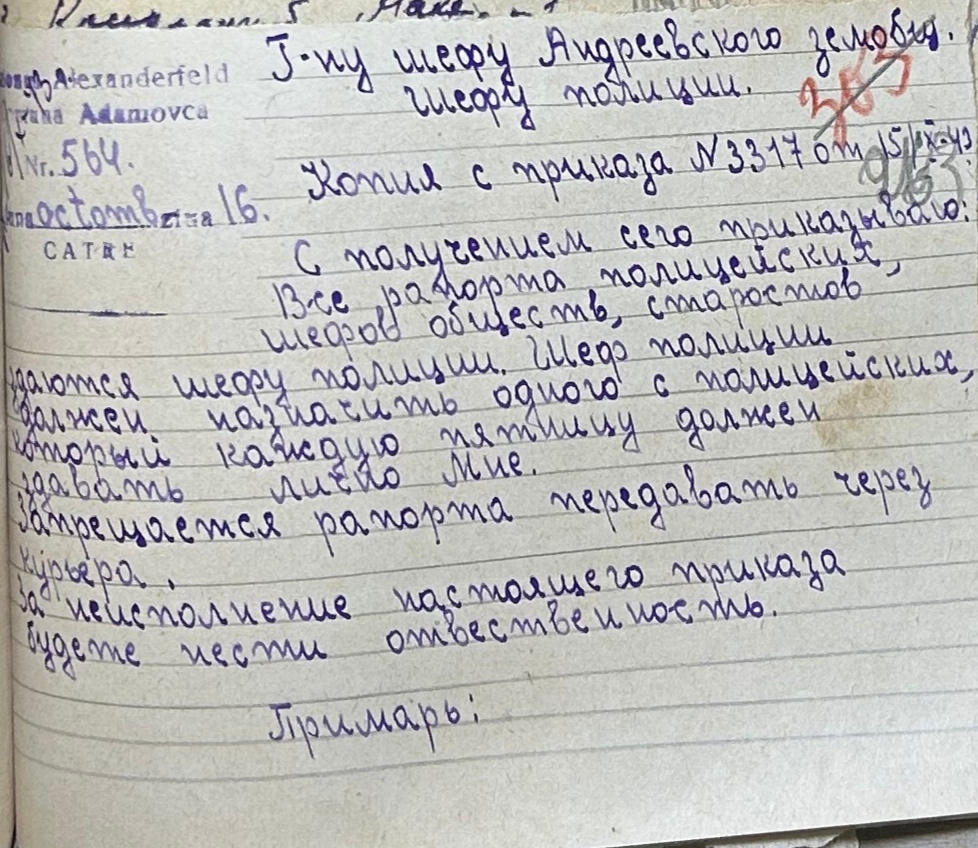 Г-ну шефу Андреевского земобщ.
Шефу полиции.
Alexanderfeld
Adamovca
Nr. 564.
octomb 16.
CATRE
365
Копия с приказа N 3317 от 15/IX-43
С получением сего приказываю:
Все рапорта полицейских,
шефов обществ, старостов
здаются шефу полиции. Шеф полиции
должен назначить одного с полицейских,
который каждую пятницу должен
здавать лично мне.
Запрещается рапорта передавать через
курьера.
За неисполнение настоящего приказа
будете нести отвественность.
Примарь: